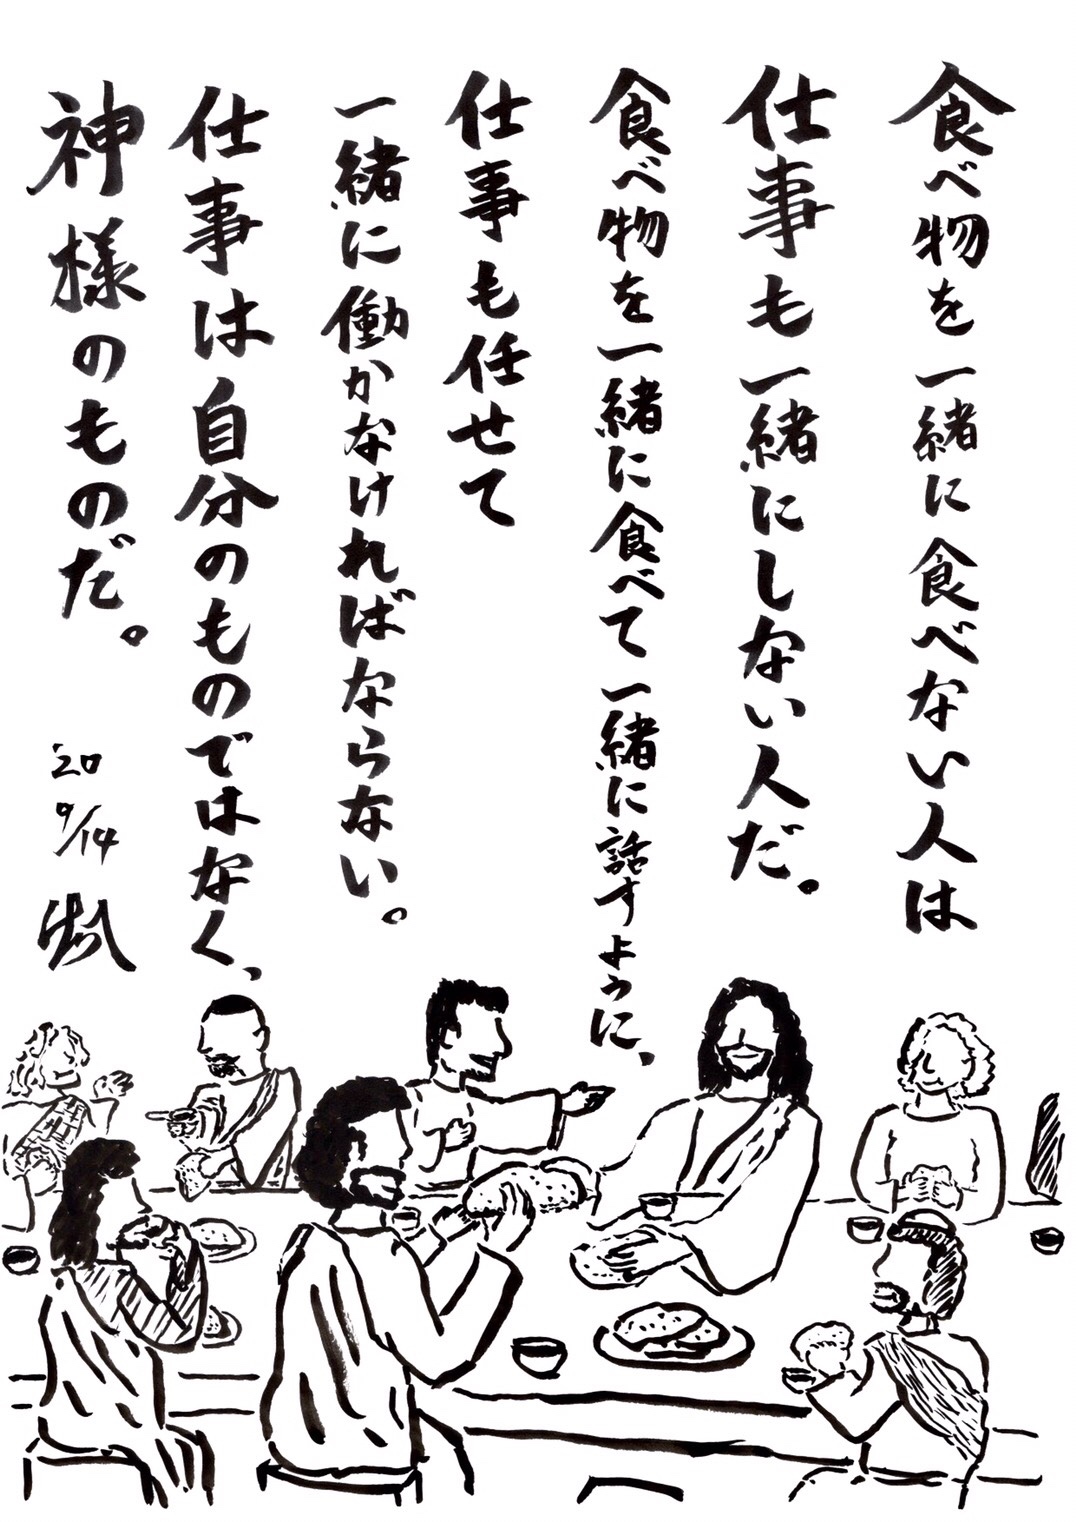 食べ物を一緒に食べない人は
仕事も一緒にしない人だ。
食べ物を一緒に食べて一緒に話すように、
仕事も任せて
一緒に働かなければならない。
仕事は自分のものではなく、
神様のものだ。
'20
9/14